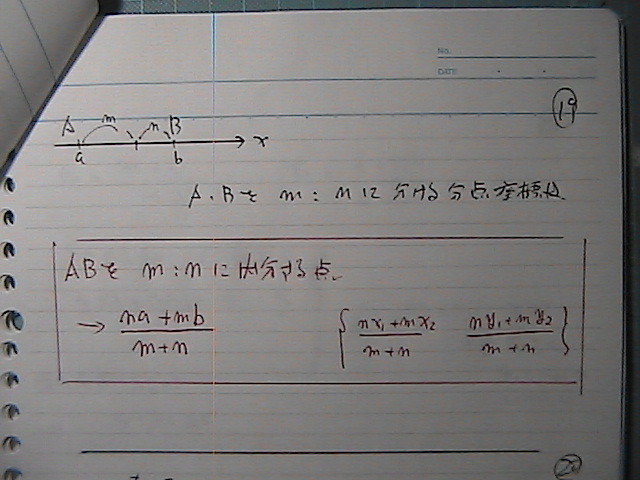 No.
DATE
19
A m n B
a b x
A.Bを m:nに分ける分点座標は
ABを m:nに内分する点、
→ na+mb / m+n { nx₁+mx₂ / m+n ny₁+my₂ / m+n }
20